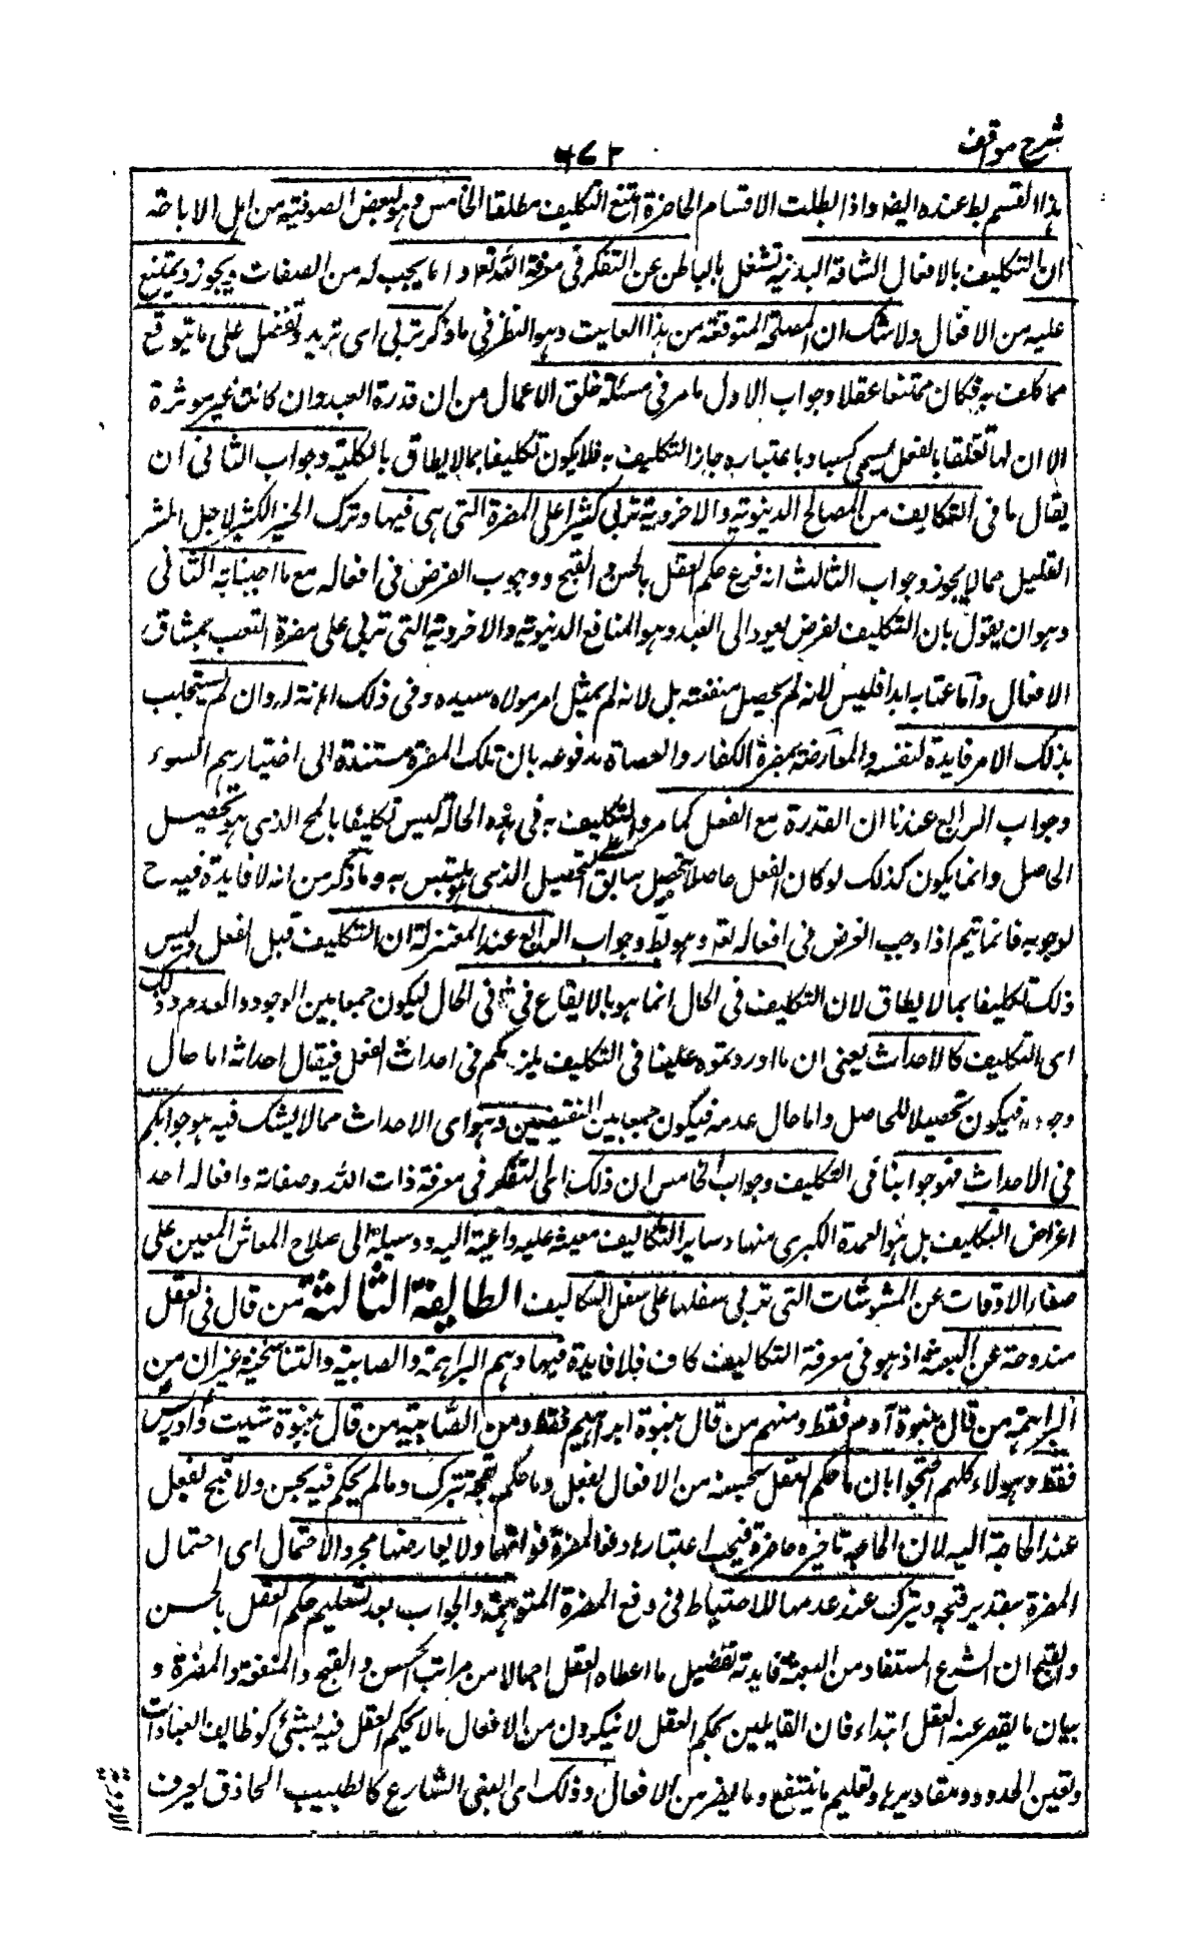 شرح مواقف
٦٧٢
هذا القسم بط عنده ايضا واذا بطلت الاقسام الحاضرة امتنع التكليف مطلقا الخامس وهو لبعض الصوفية من اهل الاباحة
ان التكليف بالافعال الشاقة البدنية تشغل الباطن عن التفكر في معرفة الله تعا وما يجب له من الصفات ويجوز ويمتنع
عليه من الافعال ولا شك ان المصلحة المتوقعة من هذا الفايت وهو النظر فيما ذكر تربى اى تزيد وتفضل على ما يتوقع
مما كلف به فكان ممتنعا عقلا وجواب الاول ما مر في مسئلة خلق الاعمال من ان قدرة العبد وان كانت غير موثرة
الا ان لها تعلقا بالفعل يسمى كسبا وباعتباره جاز التكليف به فلا يكون تكليفا بما لا يطاق بالكلية وجواب الثاني ان
يقال ما في التكاليف من المصالح الدنيوية والاخروية تربى كثيرا على المضرة التى هى فيها وترك الخير الكثير لاجل الشر
القليل مما لا يجوز وجواب الثالث انه فرع حكم العقل بالحسن والقبح ووجوب الغرض في افعاله مع ما اجبنا به الثاني
وهو ان يقول بان التكليف لغرض يعود الى العبد وهو المنافع الدنيوية والاخروية التى تربى على مضرة التعب بمشاق
الافعال واما عتابه ابدا فليس لانه لم يحصل منفعته بل لانه لم يمثل امر مولاه سيده وفي ذلك اهانة له وان لم يستجلب
بذلك الامر فايدة لنفسه والمعارضة بمضرة الكفار والعصاة مدفوعه بان تلك المضرة مستندة الى اختيارهم السوء
وجواب الرابع عندنا ان القدرة مع الفعل كما مر والتكليف به في هذه الحالة ليس تكليفا بالمح الذى هو تحصيل
الحاصل وانما يكون كذلك لو كان الفعل حاصلا بتحصيل سابق على التحصيل الذى هو يلتبس به وما ذكر من انه لا فايدة فيه ح
لوجوبه فانما يتم اذا وجب الغرض في افعاله تعه وهو بط وجواب الرابع عند المعتزلة ان التكليف قبل الفعل وليس
ذلك تكليفا بما لا يطاق لان التكليف في الحال انما هو بالايقاع في ثاني الحال ليكون جمعا بين الوجود والعدم وذلك
اى التكليف كالاحداث يعنى ان ما اوردتموه علينا في التكليف يلزمكم في احداث الفعل فيقال احداثه اما حال
وجوده فيكون تحصيلا للحاصل واما حال عدمه فيكون جمعا بين النقيضين وهو اى الاحداث مما لا يشك فيه هو جوابكم
في الاحداث فهو جوابنا في التكليف وجواب الخامس ان ذلك اى التفكر في معرفة ذات الله وصفاته وافعاله احد
اغراض التكليف بل هو العمدة الكبرى منها وساير التكاليف معينة عليه داعية اليه ووسيلة الى صلاح المعاش المعين على
صفاء الاوقات عن المشوشات التى تربى شغلها على شغل التكاليف الطايفة الثالثة من قال في العقل
مندوحة عن البعثة اذ هو في معرفة التكاليف كاف فلا فايدة فيها وهم البراهمة والصابية والتناسخية غير ان من
البراهمة من قال بنبوة آدم فقط ومنهم من قال بنبوة ابراهيم فقط ومن الصابية من قال بنبوة شيث وادريس
فقط وهولاء كلهم احتجوا بان ما حكم العقل بحسنه من الافعال يفعل وما حكم بقبحه يترك وما لم يحكم فيه بحسن ولا قبح يفعل
عند الحاجة اليه لان الحاجة ناجزة حاضرة فيجب اعتبارها دفعا لمضرة فواتها ولا يعارضها مجرد الاحتمال اى احتمال
المضرة بتقدير قبحه ويترك عند عدمها للاحتياط في دفع المضرة المتوهمة والجواب بعد تسليم حكم العقل بالحسن
والقبح ان الشرع المستفاد من البعثة فايدته تفصيل ما اعطاه العقل اجمالا من مراتب الحسن والقبح والمنفعة والمضرة و
بيان ما يقصر عنه العقل ابتداء فان القايلين بحكم العقل لا ينكرون من الافعال ما لا يحكم العقل فيه بشئ كوظايف العبادات
وتعين الحدود ومقاديرها وتعليم ما ينفع وما يضر من الافعال وذلك اى النبى الشارع كالطبيب الحاذق يعرف
الادوية